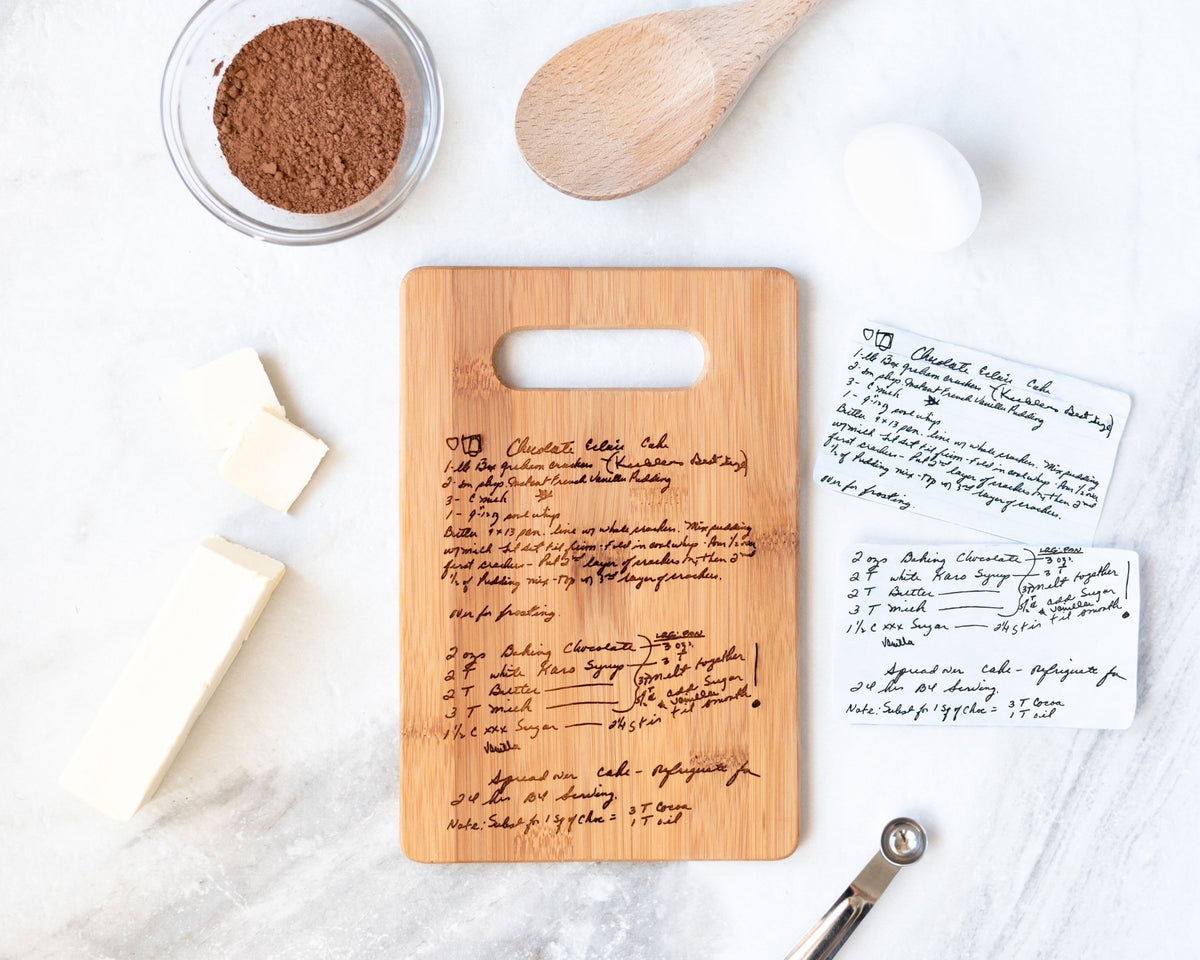 Chocolate Eclair Cake
1-lb Box graham crackers (Keeblers Best Size)
2- sm pkgs. Instant French Vanilla Pudding
3- C milk
1- 9-12 oz cool whip
Butter 9x13 pan. line w/ whole crackers. Mix pudding
w/ milk - let set til firm - Fold in cool whip - Pour 1/2 over
first crackers - Put 2nd layer of crackers on, then 2nd
1/2 of Pudding mix - Top w/ 3rd layer of crackers.
over for frosting.
LRG. PAN
2 ozs Baking Chocolate 3 ozs.
2 T white Karo Syrup 3 T
2 T Butter 3 T melt together
3 T milk add Sugar
& vanilla
1 1/2 C xxx Sugar stir til smooth
Vanilla
Spread over cake - refrigerate for
24 hrs B4 Serving.
Note: Subst for 1 Sq of Choc = 3 T Cocoa
1 T oil
Chocolate Eclair Cake
1-lb Box graham crackers (Keeblers Best Size)
2- sm pkgs. Instant French Vanilla Pudding
3- C milk
1- 9-12 oz cool whip
Butter 9x13 pan. line w/ whole crackers. Mix pudding
w/ milk - let set til firm - Fold in cool whip - Pour 1/2 over
first crackers - Put 2nd layer of crackers on, then 2nd
1/2 of Pudding mix - Top w/ 3rd layer of crackers.
over for frosting.
LRG. PAN
2 ozs Baking Chocolate 3 ozs.
2 T white Karo Syrup 3 T
2 T Butter 3 T melt together
3 T milk add Sugar
& vanilla
1 1/2 C xxx Sugar stir til smooth
Vanilla
Spread over cake - refrigerate for
24 hrs B4 Serving.
Note: Subst for 1 Sq of Choc = 3 T Cocoa
1 T oil